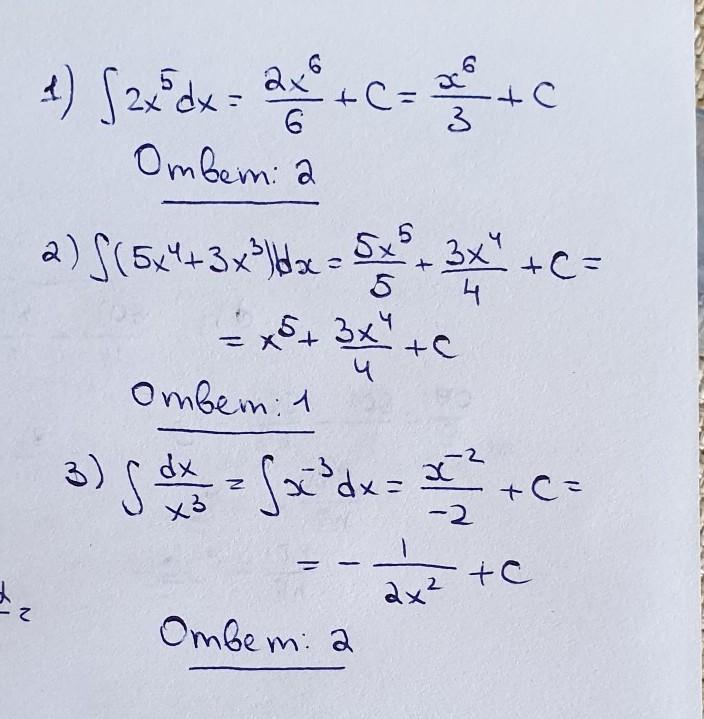 1) ∫2x⁵dx = 2x⁶/6 + C = x⁶/3 + C
Ответ: 2
2) ∫(5x⁴+3x³)dx = 5x⁵/5 + 3x⁴/4 + C =
= x⁵ + 3x⁴/4 + C
Ответ: 1
3) ∫ dx/x³ = ∫x⁻³dx = x⁻²/-2 + C =
= - 1/2x² + C
Ответ: 2